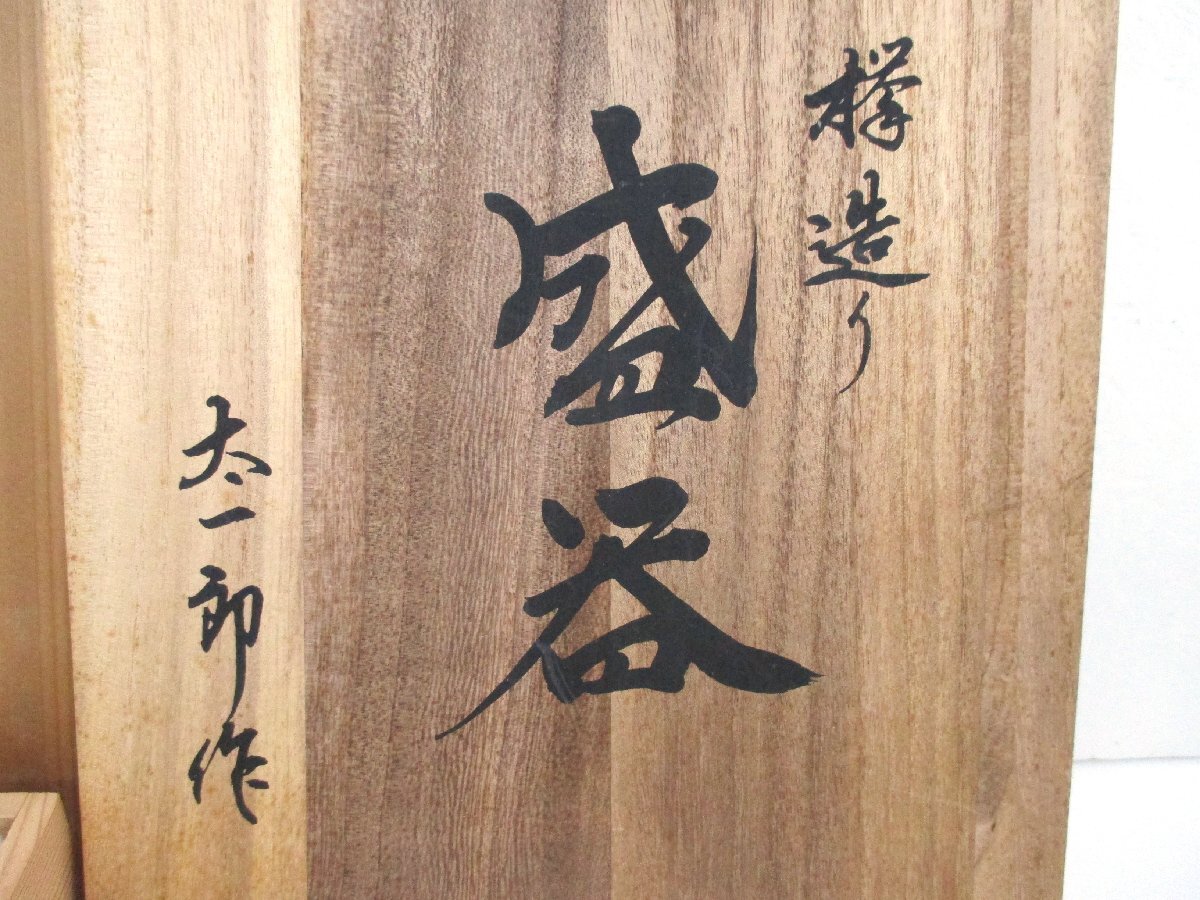 欅造り
盛器
太一郎作